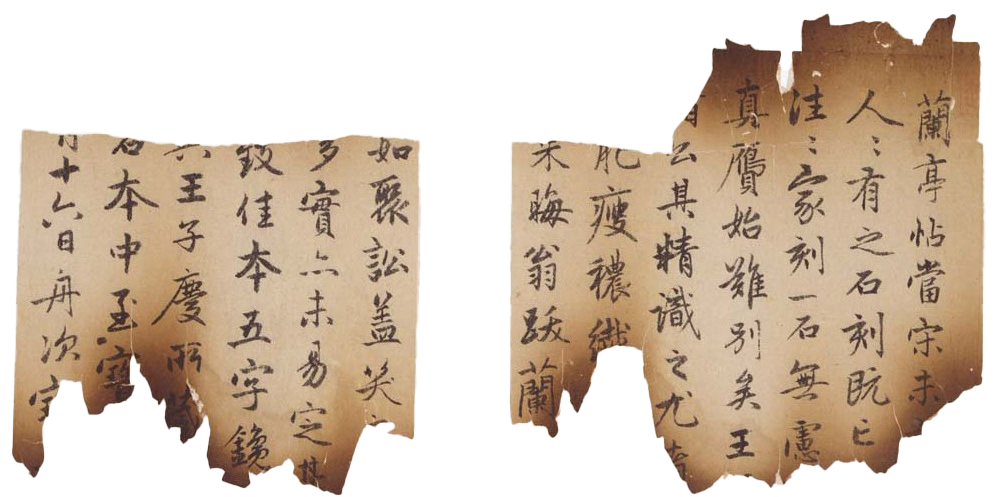 蘭亭帖當宋未
人〻有之石刻既亡
往〻家刻一石無慮
真贗始難別矣王
公其精識之尤者
肥瘦穠纖
朱晦翁跋蘭
如聚訟盖笑
多實亦未易定其
致佳本五字鑱
與王子慶所藏
石本中至寶
月十六日舟次